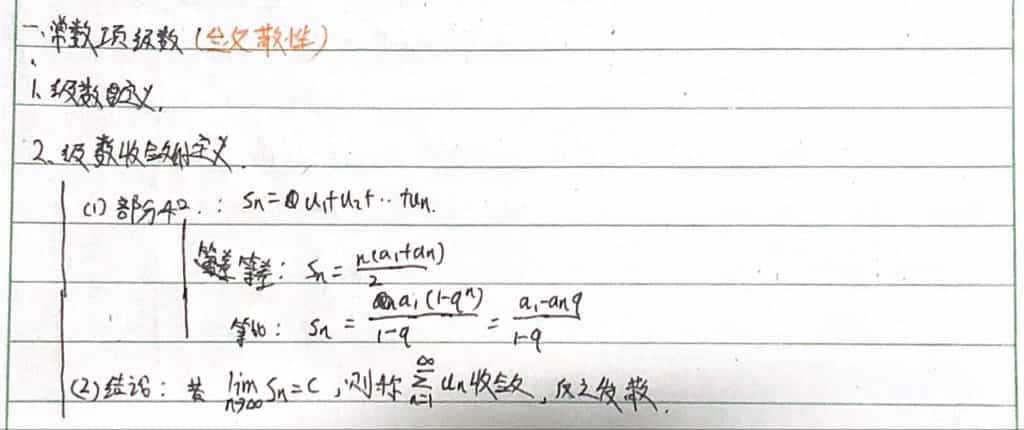 一、常数项级数(敛散性)
1、级数定义.
2、级数收敛的定义.
(1) 部分和: Sn = u1+u2+…+un.
等差: Sn = n(a1+an)/2
等比: Sn = a1(1-q^n)/(1-q) = (a1-anq)/(1-q)
(2) 结论: 若 lim n→∞ Sn = C, 则称 ∑ n=1 ∞ un 收敛, 反之发散.